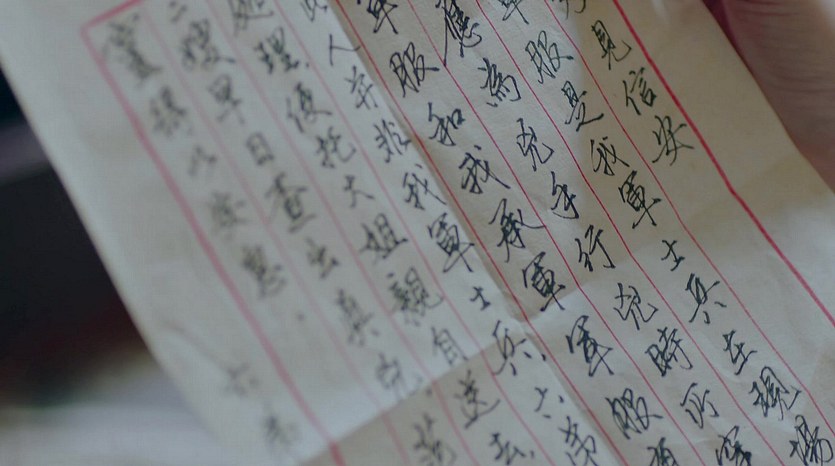 見信安
軍服是我軍士兵在現場
應為兇手行兇時所穿
軍服和我承軍軍服
此人并非我軍士兵。六
處理,便托大姐親自送去。
二嫂早日查出真兇,
靈得以安息。